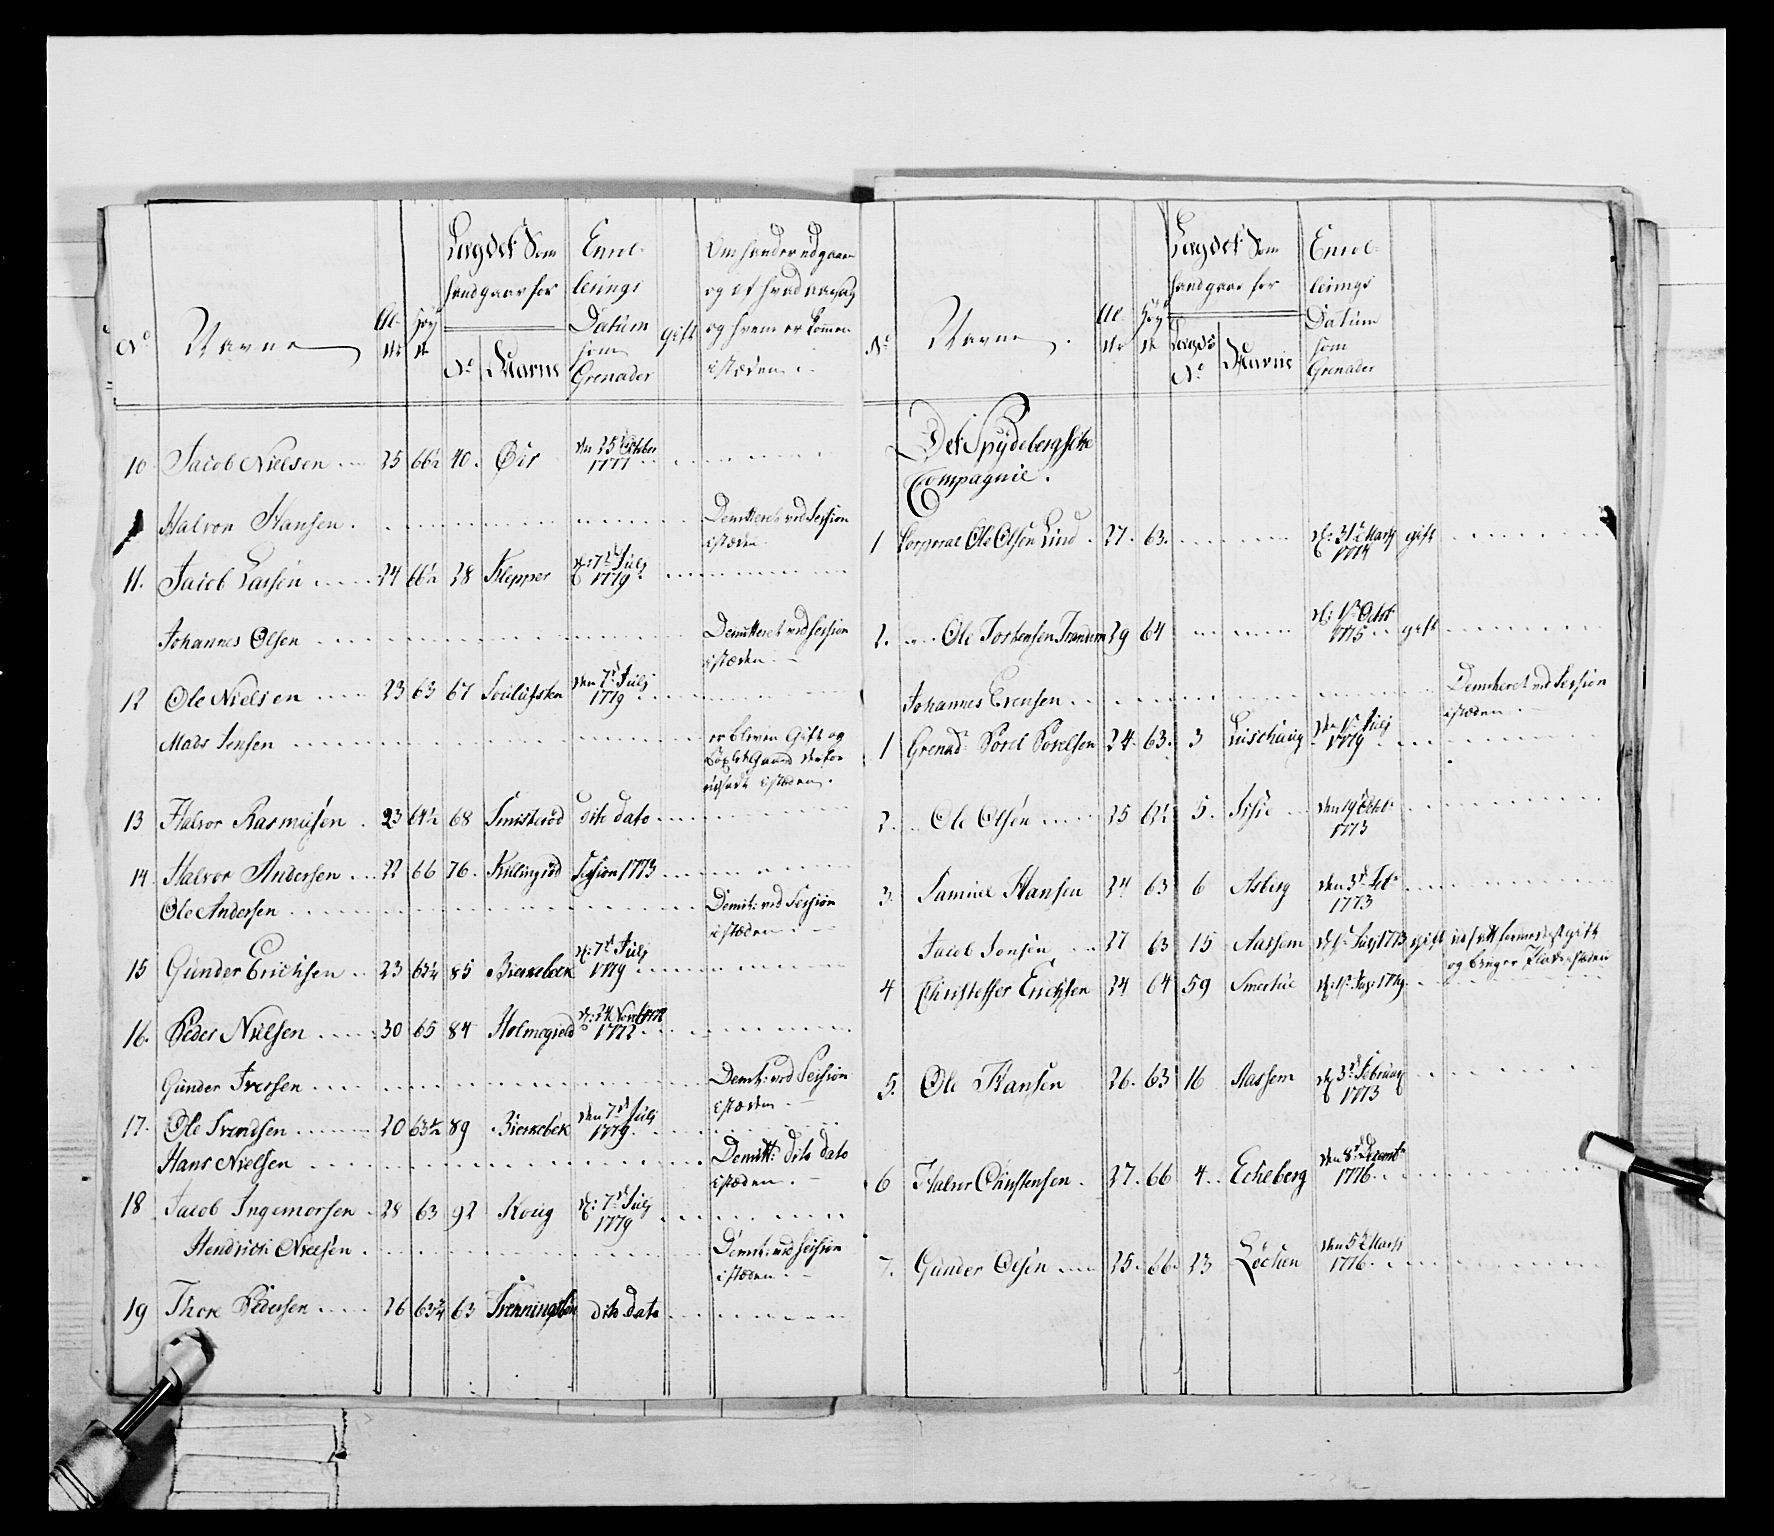 No
Navne
Al-
der
Høy
de
Lægdet Som
hand gaar for
No
Navne
Enrol-
lerings
Datum
som
Grenader
Gift
Om hand er udgaaen
og af hvad aarsag
og hvem er kommen
isteden
10 Jacob Nielsen 25 66½ 40. Öis den 25d October 1777
Halvor Hansen. Demitteret ved Session
isteden
11. Jacob Larsen 24 66½ 28 Klepper d: 7d Julj 1779
Johannes Olsen Demitteret ved Session
isteden
12 Ole Nielsen 23 63 67 den 7d Julj 1779
Mads Jensen er bleven Gift og
isteden.
13 Halvor Rasmusen 23 64½ 68 Smisteröd dito dato
14 Halvor Andersen 22 66 76. Killingröd Session 1773
Ole Andersen Demit: ved Session
isteden
15 Gunder Erichsen 23 63¼ 85 Bierkebek d: 7d Julj 1779
16. Peder Nielsen 30 65 84 Holmegield d: 24 Novbr 1772
Gunder Iversen Demit: ved Session
isteden
17. Ole Svendsen 20 63½ 89 Bierkebek den 7d Julj 1779
Hans Nielsen Demitt: dito dato
isteden.
18 Jacob Ingemorsen 28 63 92 Krug d: 7d Julj 1779
Hendrich Nielsen Demit: ved Session
isteden
19 Thore Pedersen 26 63¾ 63 dito dato
No
Navne.
Al-
der
Høy
de
Lægdet Som
hand gaar for
Lægds
No
Navne
Enrol-
lerings
Datum
som
Grenader
Det Spydebergske
Compagnie.
1 Corporal Ole Olsen Lind 27. 63. d: 31te Martj 1774 gift
2. Ole Torstensen Trandem 29 64 d: 13 Octbr 1775 gift
Johannes Evensen Demitteret ved Session
isteden
1 Grenad: Povel Povelsen 24. 63. 3 den 1d Julj 1779
2. Ole Olsen 25 62½ 5. den 19d Octbr 1773
3. Samuel Hansen 24 63 6 Asberg den 3d Feb: 1773
Jacob Jonsen 27 63 15 Aassem 1773 gift
og bruger Plads isteden
4 Christoffer Erichsen 24 64 59 1779
5. Ole Hansen 26. 63 16 Aassem d: 3d Februarj 1773
6 Halvor Christensen. 27. 66 4. Echeberg den 8d Decembr 1776.
7. Gunder Olsen 25. 66. 23 Löchen den 5d Martj 1776.